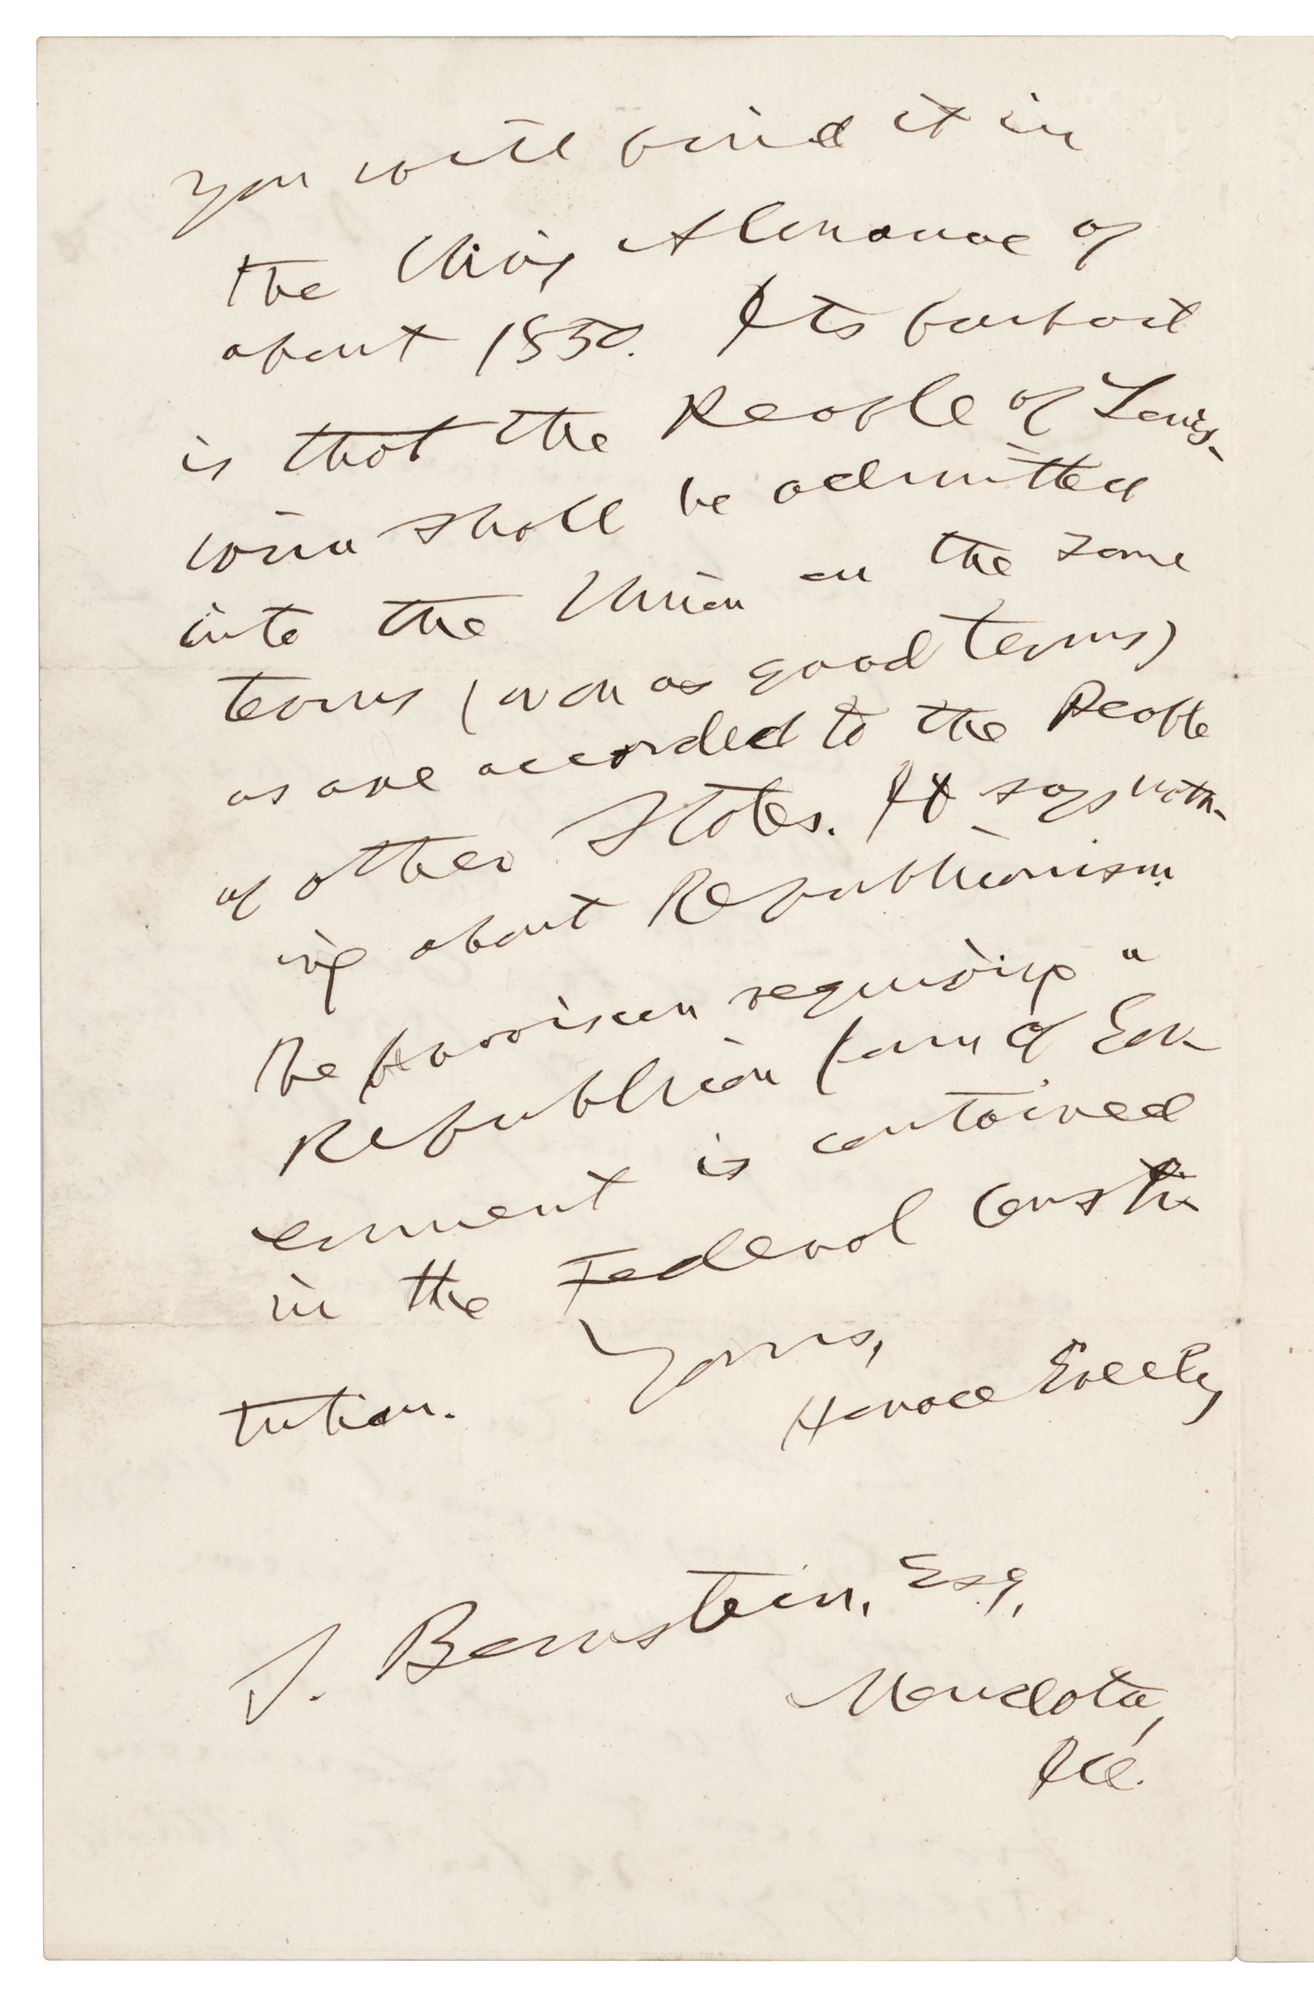 You will find it in
the Whig Almanac of
about 1850. Its purport
is that the People of Louis-
iana shall be admitted
into the Union on the same
terms (or on as good terms)
as are accorded to the People
of other States. It says noth-
ing about Republicanism.
The provision requiring "
Republican form of Gov-
ernment is contained
in the Federal Consti-
tution.
Yours,
Horace Greeley
J. Bernstein, Esq,
Mendota,
Ill.